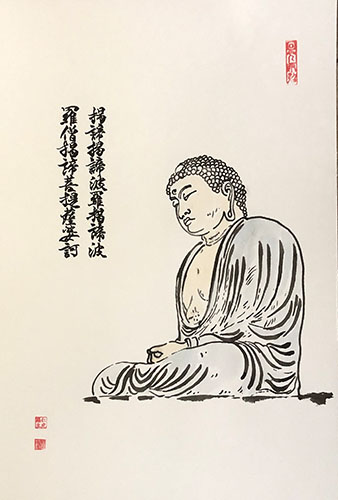 揭諦揭諦波羅揭諦波
羅僧揭諦菩提薩婆訶